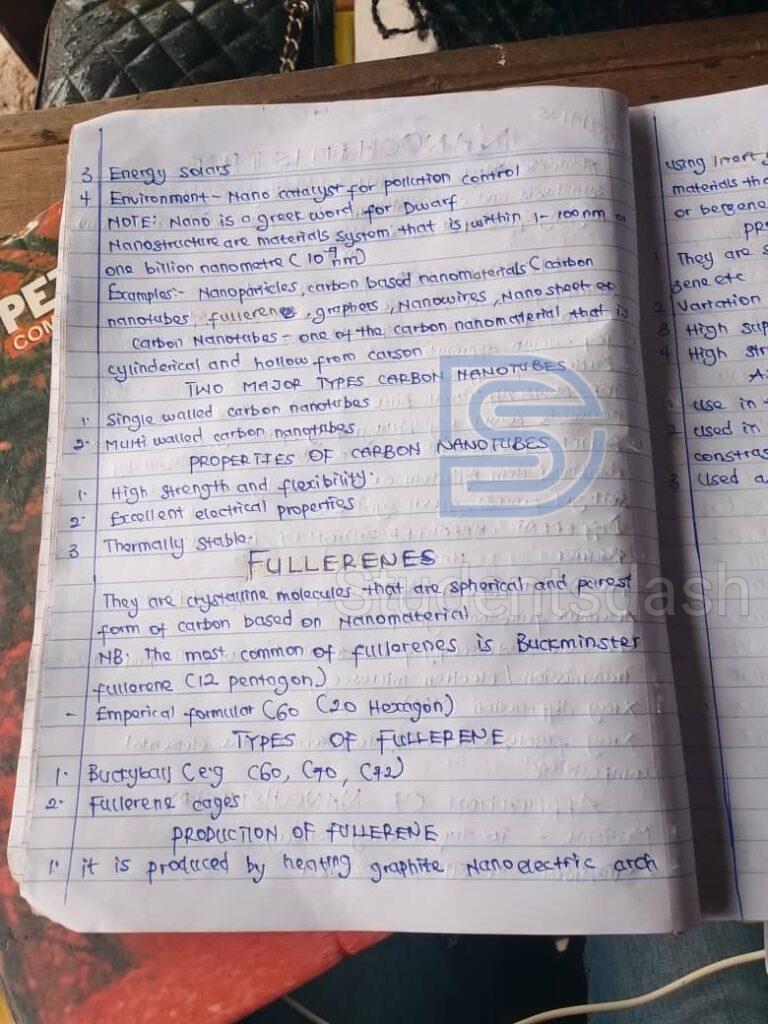 3 Energy solars
4 Environment - Nano catalyst for pollution control
NOTE: Nano is a greek word for Dwarf
Nanostructure are materials system that is within 1-100nm or
one billion nanometre (10⁻⁹nm)
Examples:- Nanoparticles, carbon based nanomaterials (carbon
nanotubes, fullerenes, graphers, Nanowires, Nanosheet etc
Carbon Nanotubes - one of the carbon nanomaterial that is
cylinderical and hollow from carson
TWO MAJOR TYPES CARBON NANOTUBES
1. Single walled carbon nanotubes
2. Multi walled carbon nanotubes
PROPERTIES OF CARBON NANOTUBES
1. High strength and flexibility.
2. Excellent electrical properties
3 Thermally stable.
FULLERENES
They are crystalline molecules that are spherical and purest
form of carbon based on Nanomaterial
NB: The most common of fullerenes is Buckminster
fullerene (12 pentagon)
- Emperical formular C60 (20 Hexagon)
TYPES OF FULLERENE
1. Buckyball (eg C60, C70, C72)
2. Fullerene cages
PRODUCTION OF FULLERENE
1. it is produced by heating graphite Nanoelectric arch
using inert
materials tha
or benzene
They are s
zene etc
2 Variation
3 High sup
4 High str
A
1 Use in
2 Used in
constras
3 Used a
PE
COM
Studentsdash